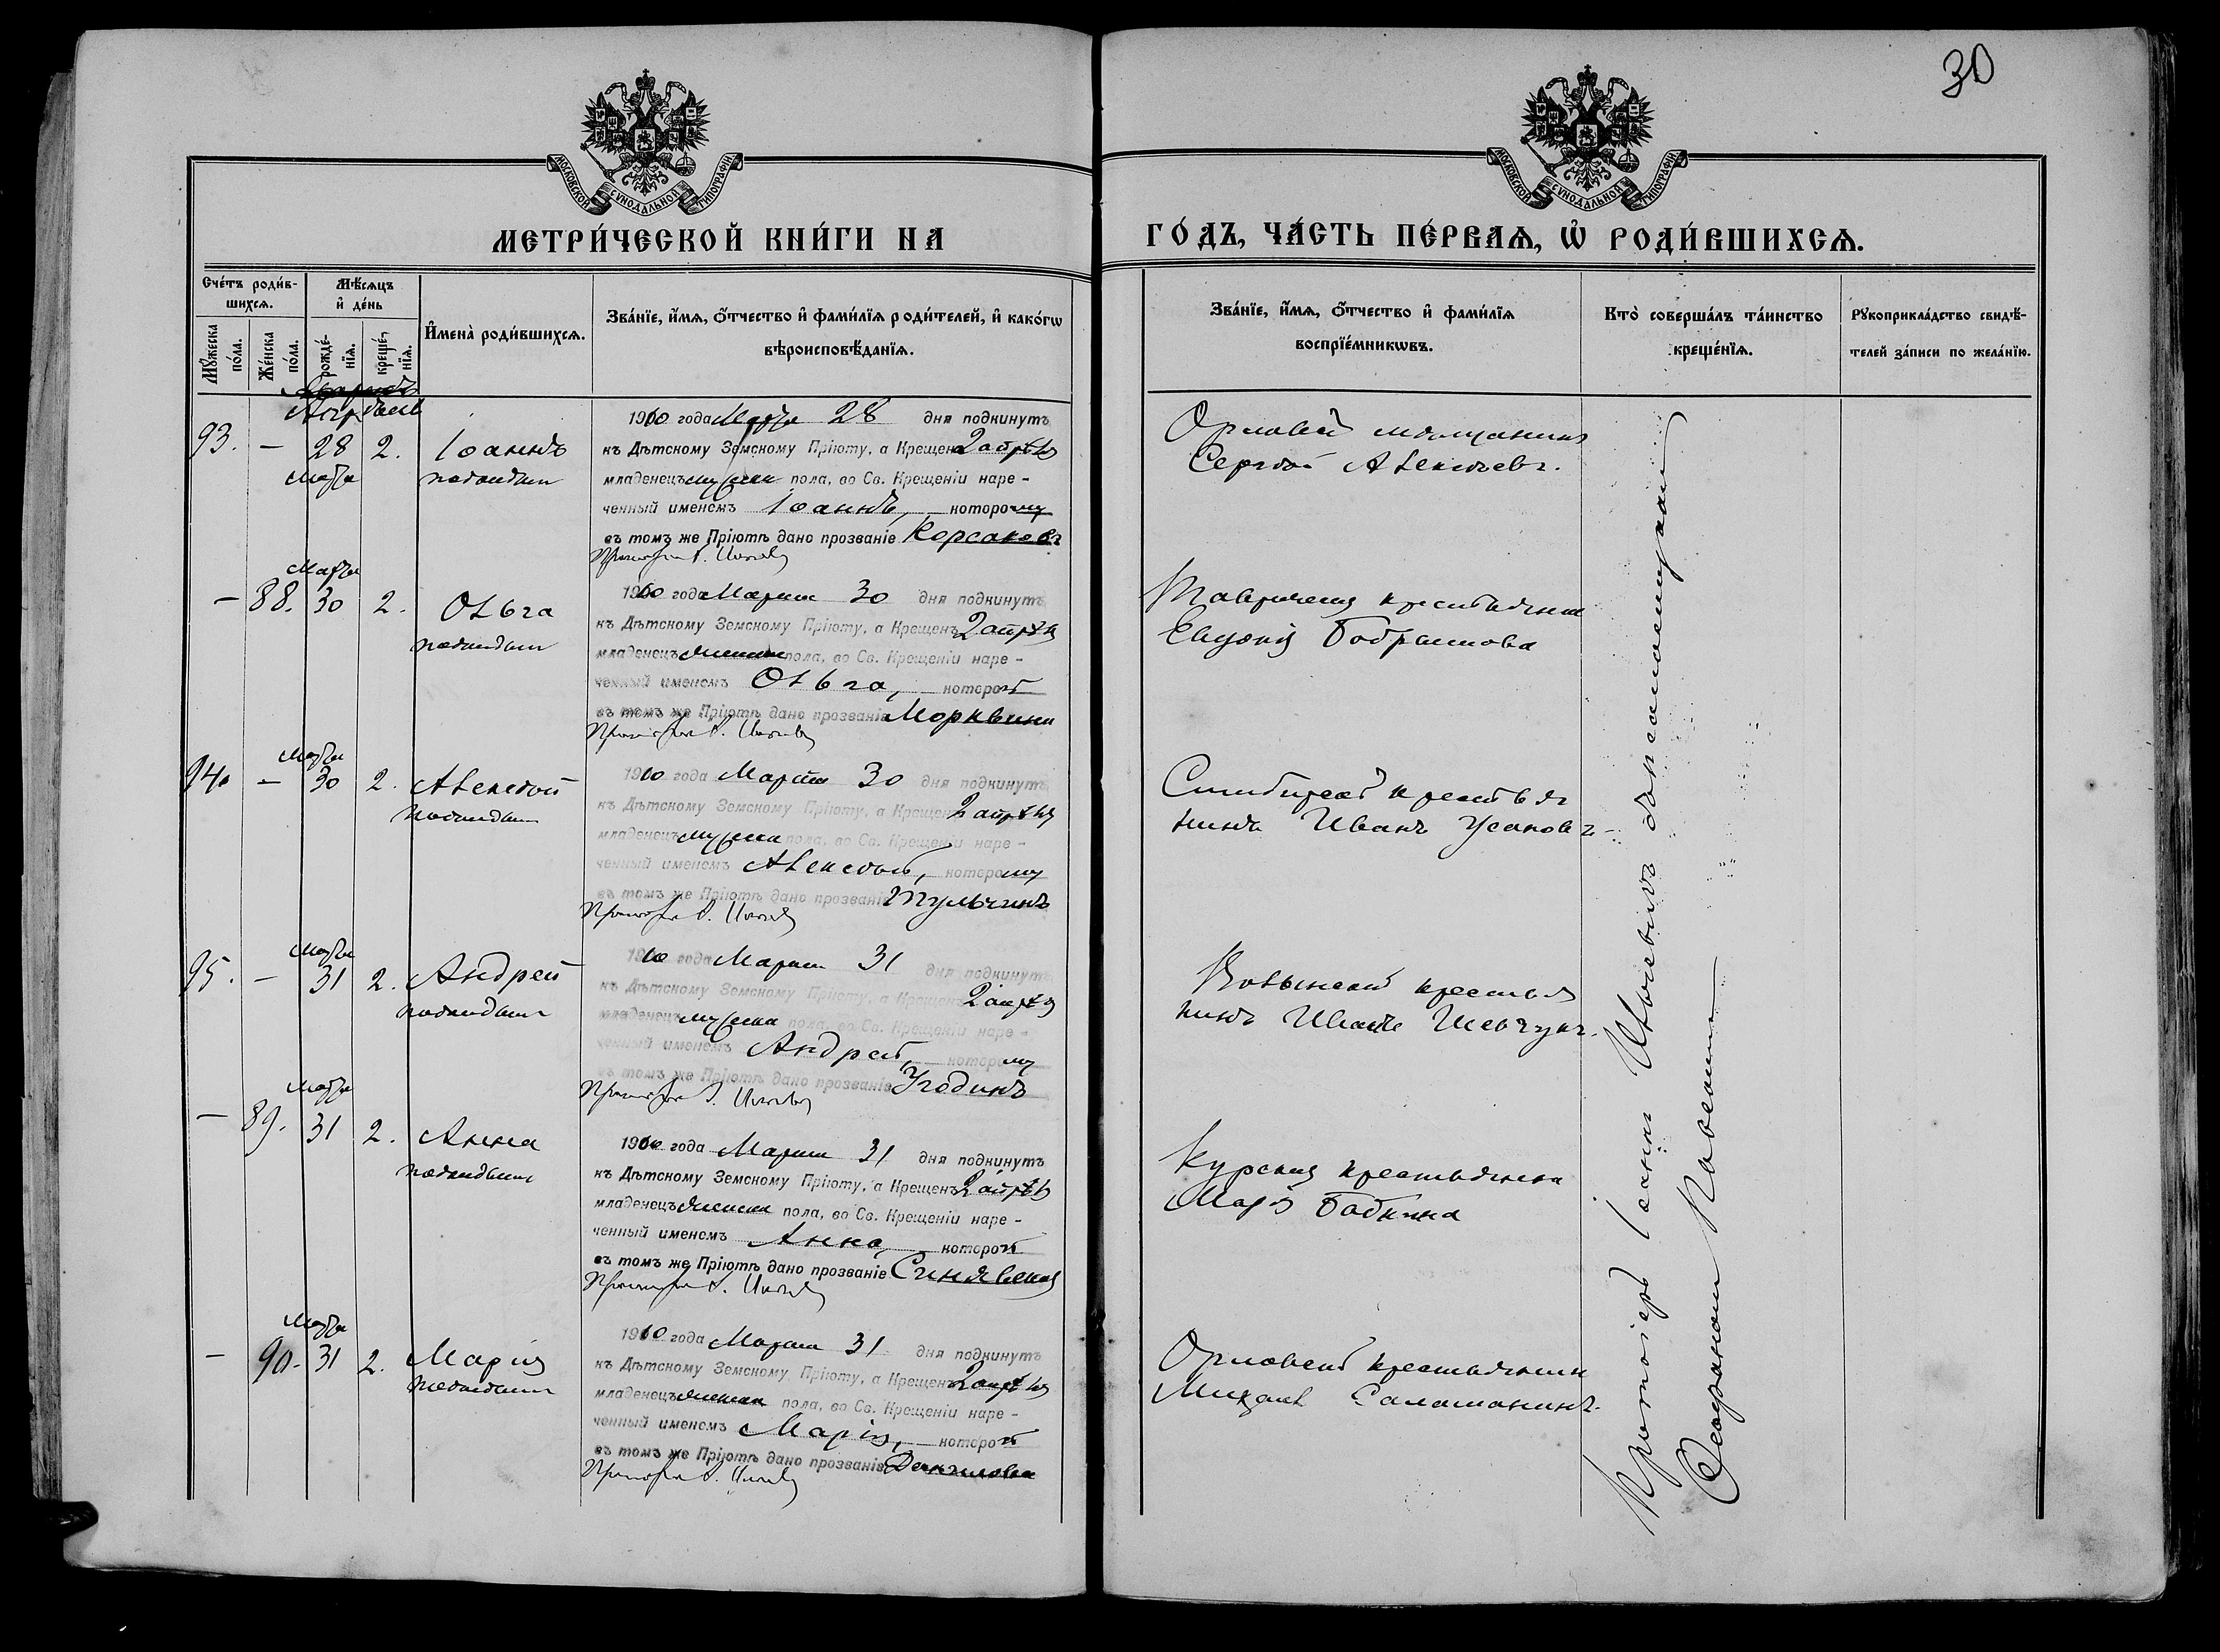 30
МОСКОВСКОЙ СУНОДАЛЬНОЙ ТИПОГРАФІИ
МОСКОВСКОЙ СУНОДАЛЬНОЙ ТИПОГРАФІИ
МЕТРИ́ЧЕСКОЙ КНИ́ГИ НА
ГО́ДЪ, ЧА́СТЬ ПЕ́РВАѦ, Ѡ҆ РОДИ́ВШИХСѦ.
Сче́тъ роди́в-
шихсѧ.
Мꙋ́жеска по́ла.
Же́нска по́ла.
Мѣ́сѧцъ
и҆ де́нь
рожде́-нїѧ.
креще́-нїѧ.
И҆мена̀ роди́вшихсѧ.
Зва́нїе, и҆́мѧ, ѻ҆́тчество и҆ фами́лїѧ роди́телей, и҆ како́гѡ
вѣроисповѣ́данїѧ.
Зва́нїе, и҆́мѧ, ѻ҆́тчество и҆ фами́лїѧ
воспрїе́мникѡвъ.
Кто̀ соверша́лъ та́инство
креще́нїѧ.
Рꙋкоприкла́дство свидѣ́-
телей за́писи по жела́нїю.
Апрѣль
93. – 28 2. Іоаннъ
Марта подкидыш
1910 года Марта 28 дня подкинутъ
къ Дѣтскому Земскому Пріюту, а Крещенъ 2 апрѣля
младенецъ мужска пола, во Св. Крещеніи наре-
ченный именемъ Іоаннъ, которому
въ томъ же Пріютѣ дано прозваніе Корсаковъ
Орловскій мѣщанинъ
Сергѣй Алексѣевъ.
Марта
– 88. 30 2. Ольга
подкидыш
1910 года Марта 30 дня подкинутъ
къ Дѣтскому Земскому Пріюту, а Крещенъ 2 апрѣля
младенецъ женска пола, во Св. Крещеніи наре-
ченный именемъ Ольга, которой
въ томъ же Пріютѣ дано прозваніе Морквина
Таврическая крестьянка
Евдокія
Марта
94. – 30 2. Алексѣй
подкидыш
1910 года Марта 30 дня подкинутъ
къ Дѣтскому Земскому Пріюту, а Крещенъ 2 апрѣля
младенецъ мужска пола, во Св. Крещеніи наре-
ченный именемъ Алексѣй, которому
въ томъ же Пріютѣ дано прозваніе Тульчинъ
Симбирскій крестья
нинъ Иванъ Усановъ
Марта
95. – 31 2. Андрей
подкидыш
1910 года Марта 31 дня подкинутъ
къ Дѣтскому Земскому Пріюту, а Крещенъ 2 апрѣля
младенецъ мужска пола, во Св. Крещеніи наре-
ченный именемъ Андрей, которому
въ томъ же Пріютѣ дано прозваніе Угодинъ
Волынскій крестья
нинъ Иванъ Шевчукъ.
Марта
– 89. 31 2. Анна
подкидыш
1910 года Марта 31 дня подкинутъ
къ Дѣтскому Земскому Пріюту, а Крещенъ 2 апрѣля
младенецъ женска пола, во Св. Крещеніи наре-
ченный именемъ Анна, которой
въ томъ же Пріютѣ дано прозваніе Синявская
Курская крестьянка
Марія Бабкина
Марта
– 90. 31 2. Марія
подкидыш
1910 года Марта 31 дня подкинутъ
къ Дѣтскому Земскому Пріюту, а Крещенъ 2 апрѣля
младенецъ женска пола, во Св. Крещеніи наре-
ченный именемъ Марія, которой
въ томъ же Пріютѣ дано прозваніе Данилова
Орловскій крестьянинъ
Михаилъ Саломахинъ.
Протоіерей Іоаннъ